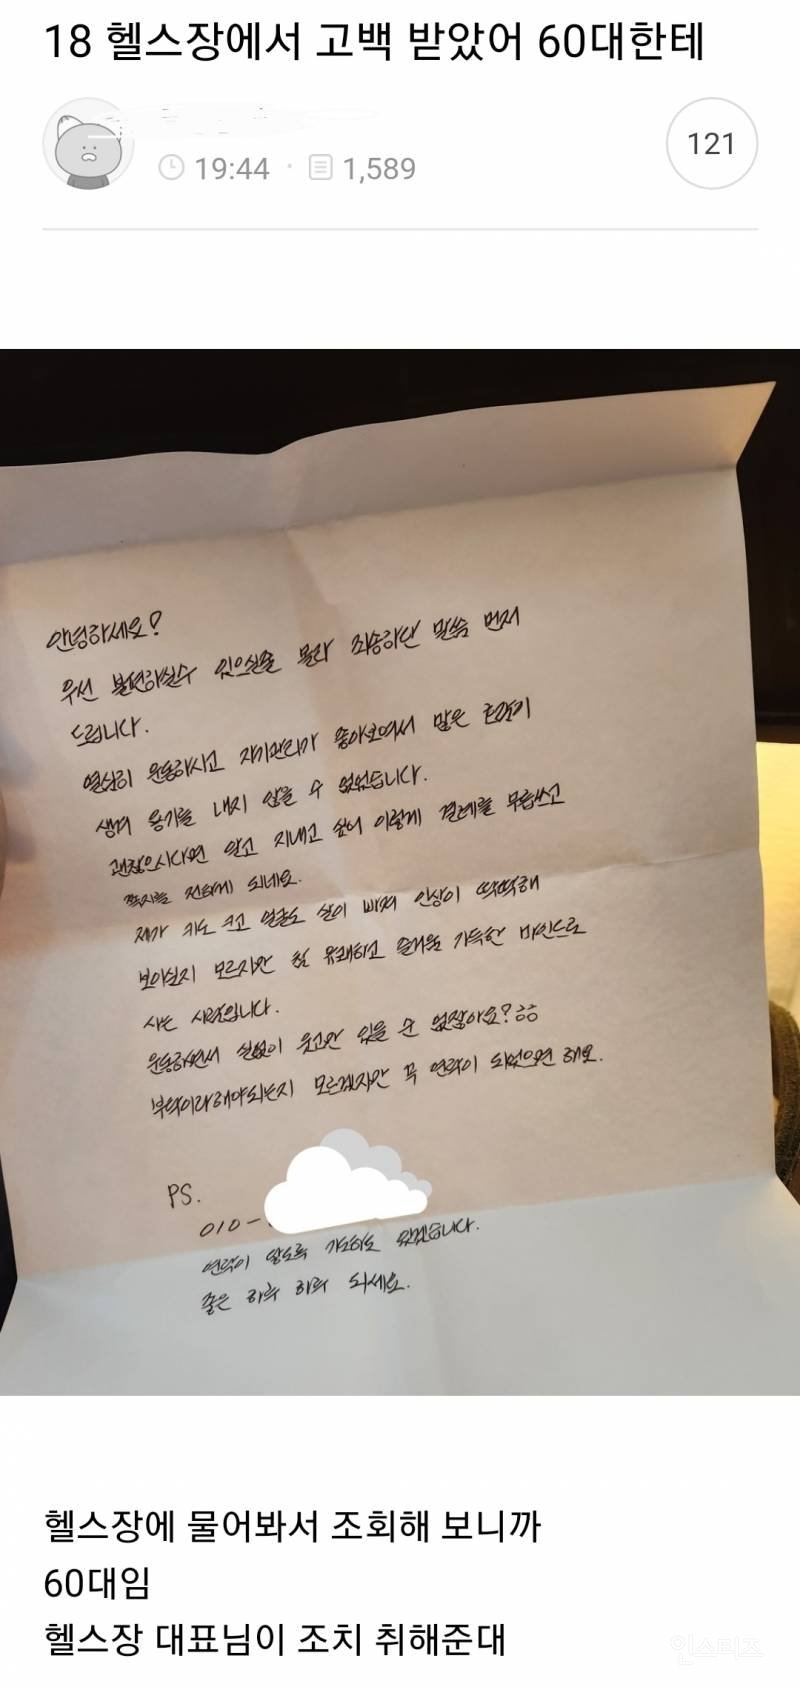 18 헬스장에서 고백 받았어 60대한테
19:44 · 1,589
121
안녕하세요?
우선 불편하실수 있으실줄 몰라 죄송하단 말씀 먼저
드립니다.
열심히 운동하시고 자기관리가 좋아보여서 많은 호감이
생겨 용기를 내지 않을 수 없었습니다.
괜찮으시다면 알고 지내고 싶어 이렇게 결례를 무릅쓰고
쪽지를 전하게 되네요.
제가 키도 크고 얼굴도 살이 빠져 인상이 딱딱해
보이실지 모르지만 참 유쾌하고 즐거움 가득한 마인드로
사는 사람입니다.
운동하면서 실없이 웃고만 있을 순 없잖아요? ㅎㅎ
부탁이라해야되는지 모르겠지만 꼭 연락이 되었으면 해요.
PS.
010-
연락이 않도록 기도하고 있겠습니다.
좋은 하루 하루 되세요.
헬스장에 물어봐서 조회해 보니까
60대임
헬스장 대표님이 조치 취해준대
인스티즈